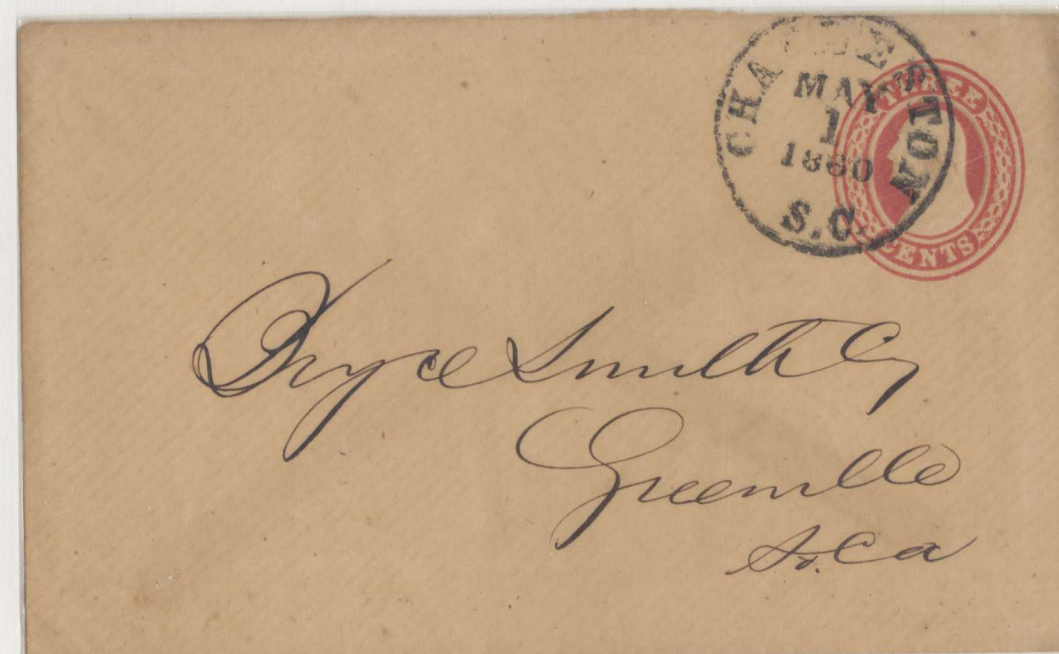 CHARLESTON
MAY
1
1860
S.C.
THREE
CENTS
Bryce Smith Co
Greenville
So. Ca